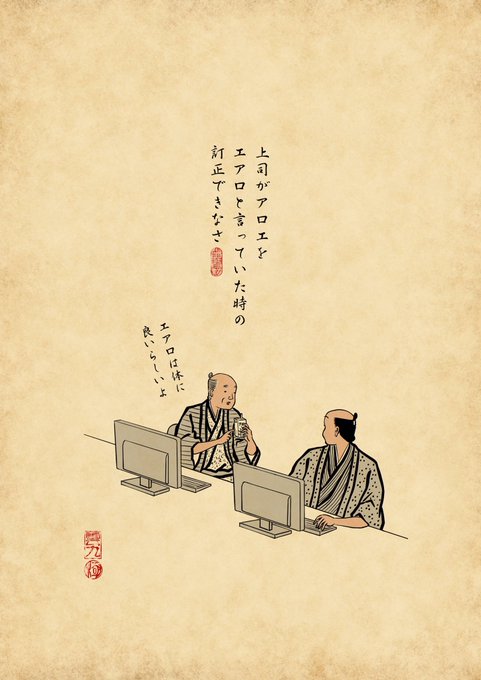 上司がアロエを
エアロと言っていた時の
訂正できなさ
エアロは体に
良いらしいよ